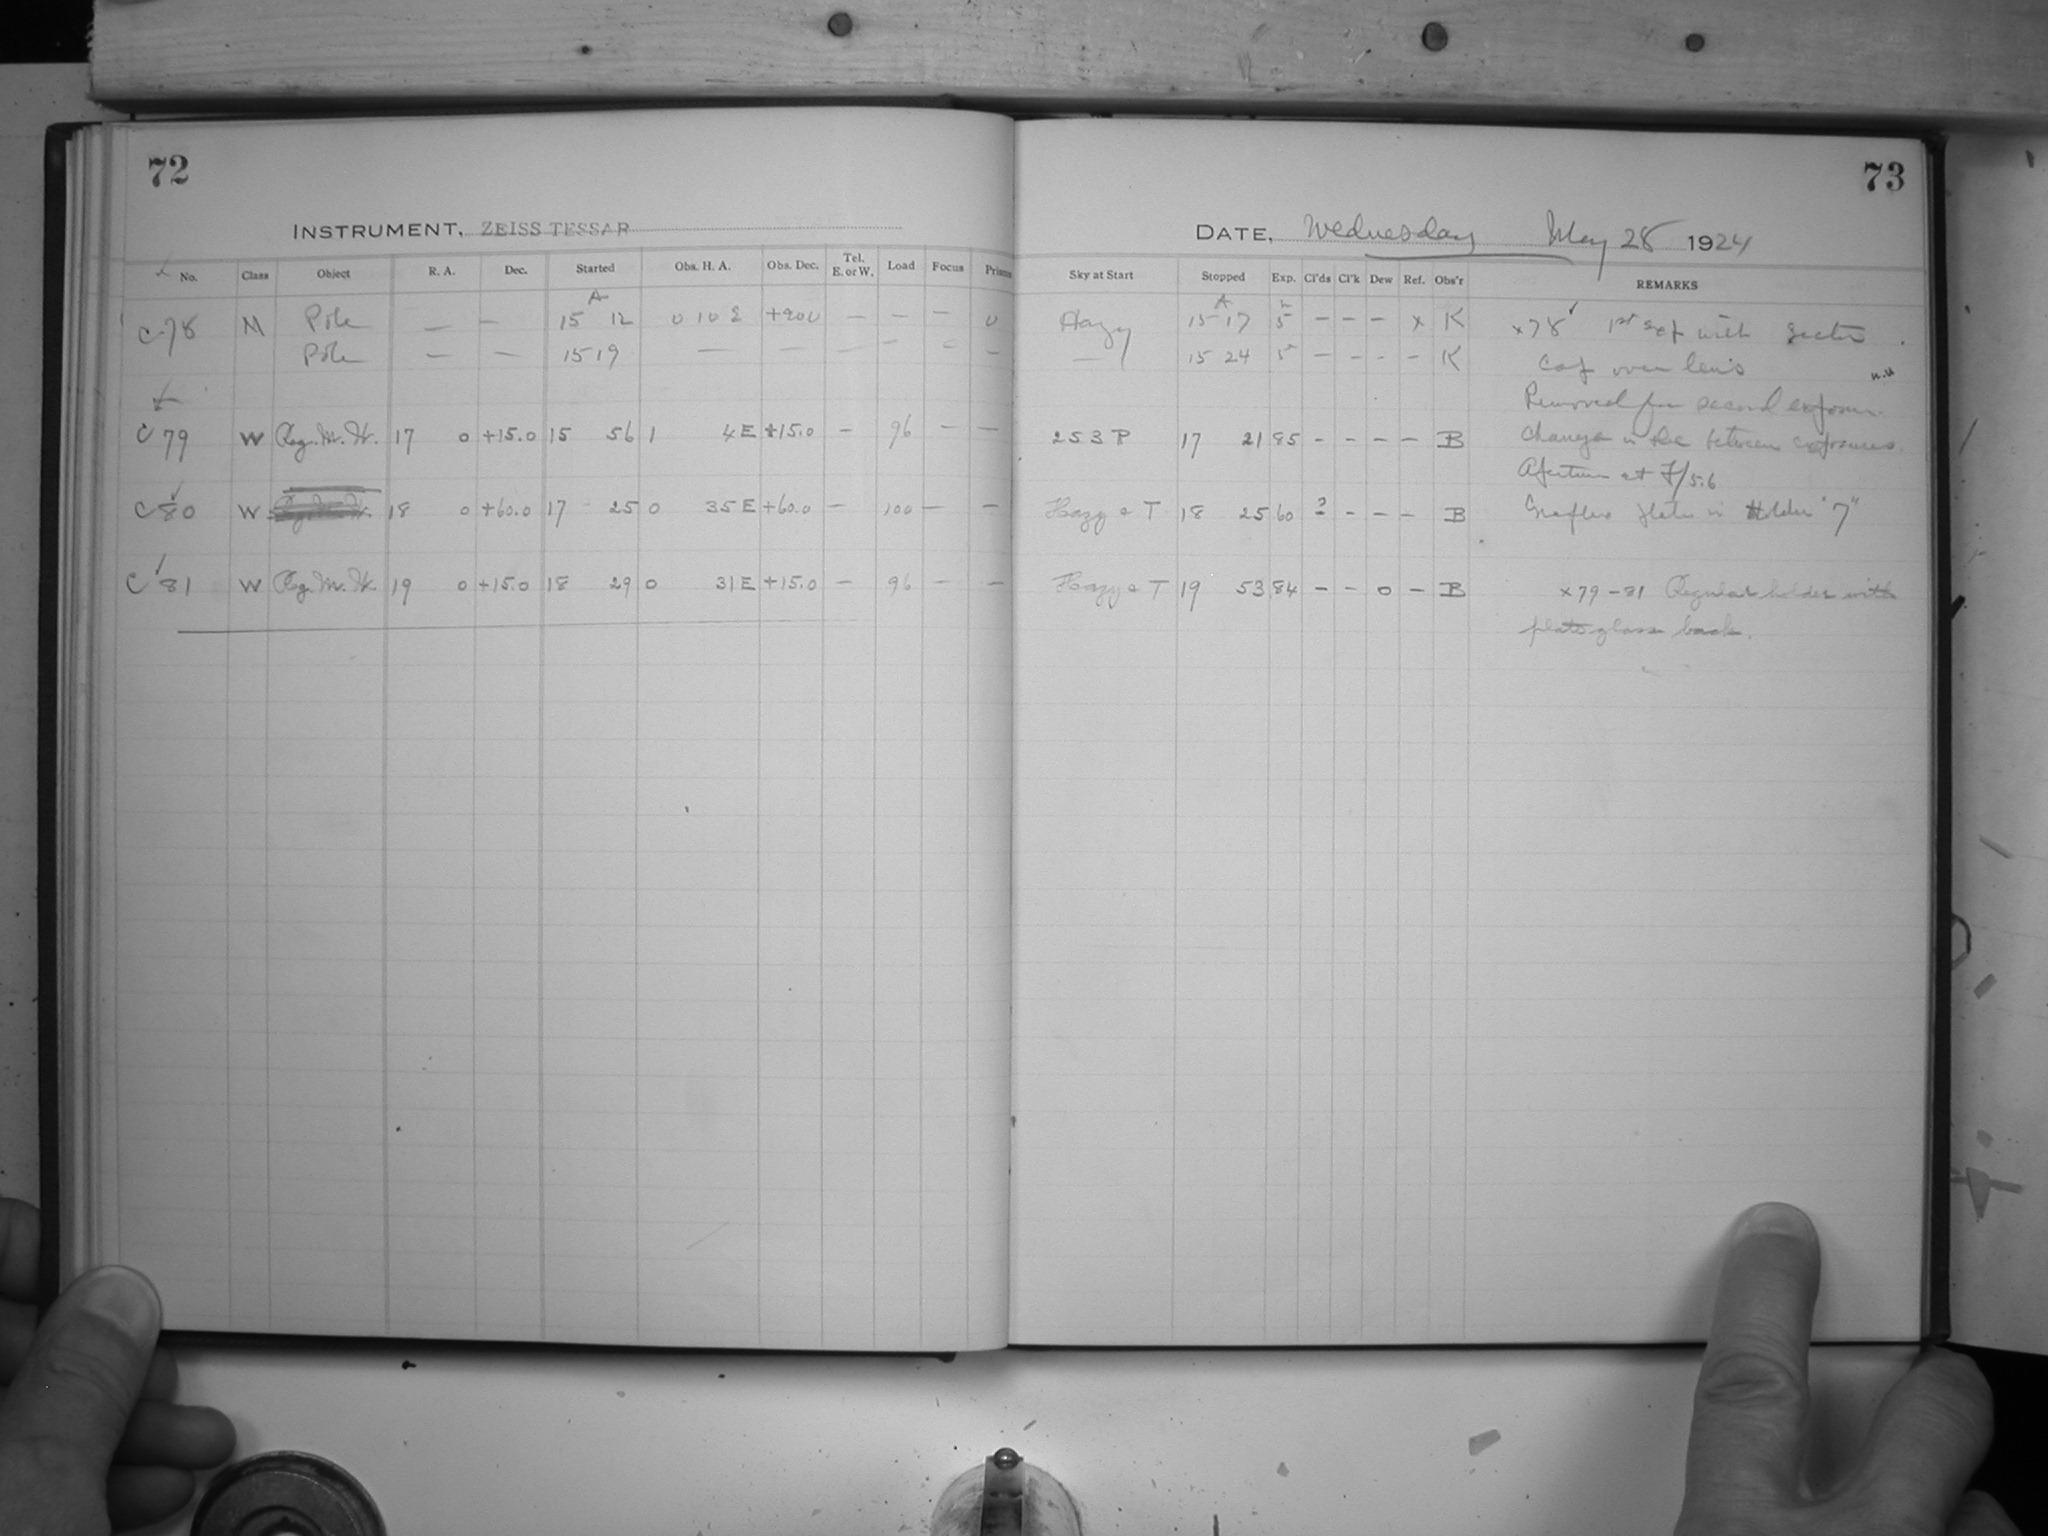 72
INSTRUMENT, ZEISS TESSAR
No. Class Object R. A. Dec. Started Obs. H. A. Obs. Dec. Tel. E. or W. Load Focus Prisms
C 78 M Pole — — 15 12 0 10 E +90 0 — — — 0
Pole — — 15 19 — — — — — —
C 79 W Reg. M. W. 17 0 +15.0 15 56 1 4 E +15.0 — 96 — —
C 80 W 18 0 +60.0 17 25 0 35 E +60.0 — 100 — —
C 81 W Reg. M. W. 19 0 +15.0 18 29 0 31 E +15.0 — 96 — —
73
DATE, Wednesday May 28 1924
Sky at Start Stopped Exp. Cl'ds Cl'k Dew Ref. Obs'r REMARKS
Hazy 15 17 5 — — — x K x78 1st exp with sector
— 15 24 5 — — — — K cap over lens
Removed for second exposure.
253 P 17 21 85 — — — — B Change in between exposures.
Aperture at F/5.6
Hazy & T 18 25 60 ? — — — B Graflex plate in Holder "7"
Hazy & T 19 53 84 — — 0 — B x79-81 Regular holder with
plate glass back.